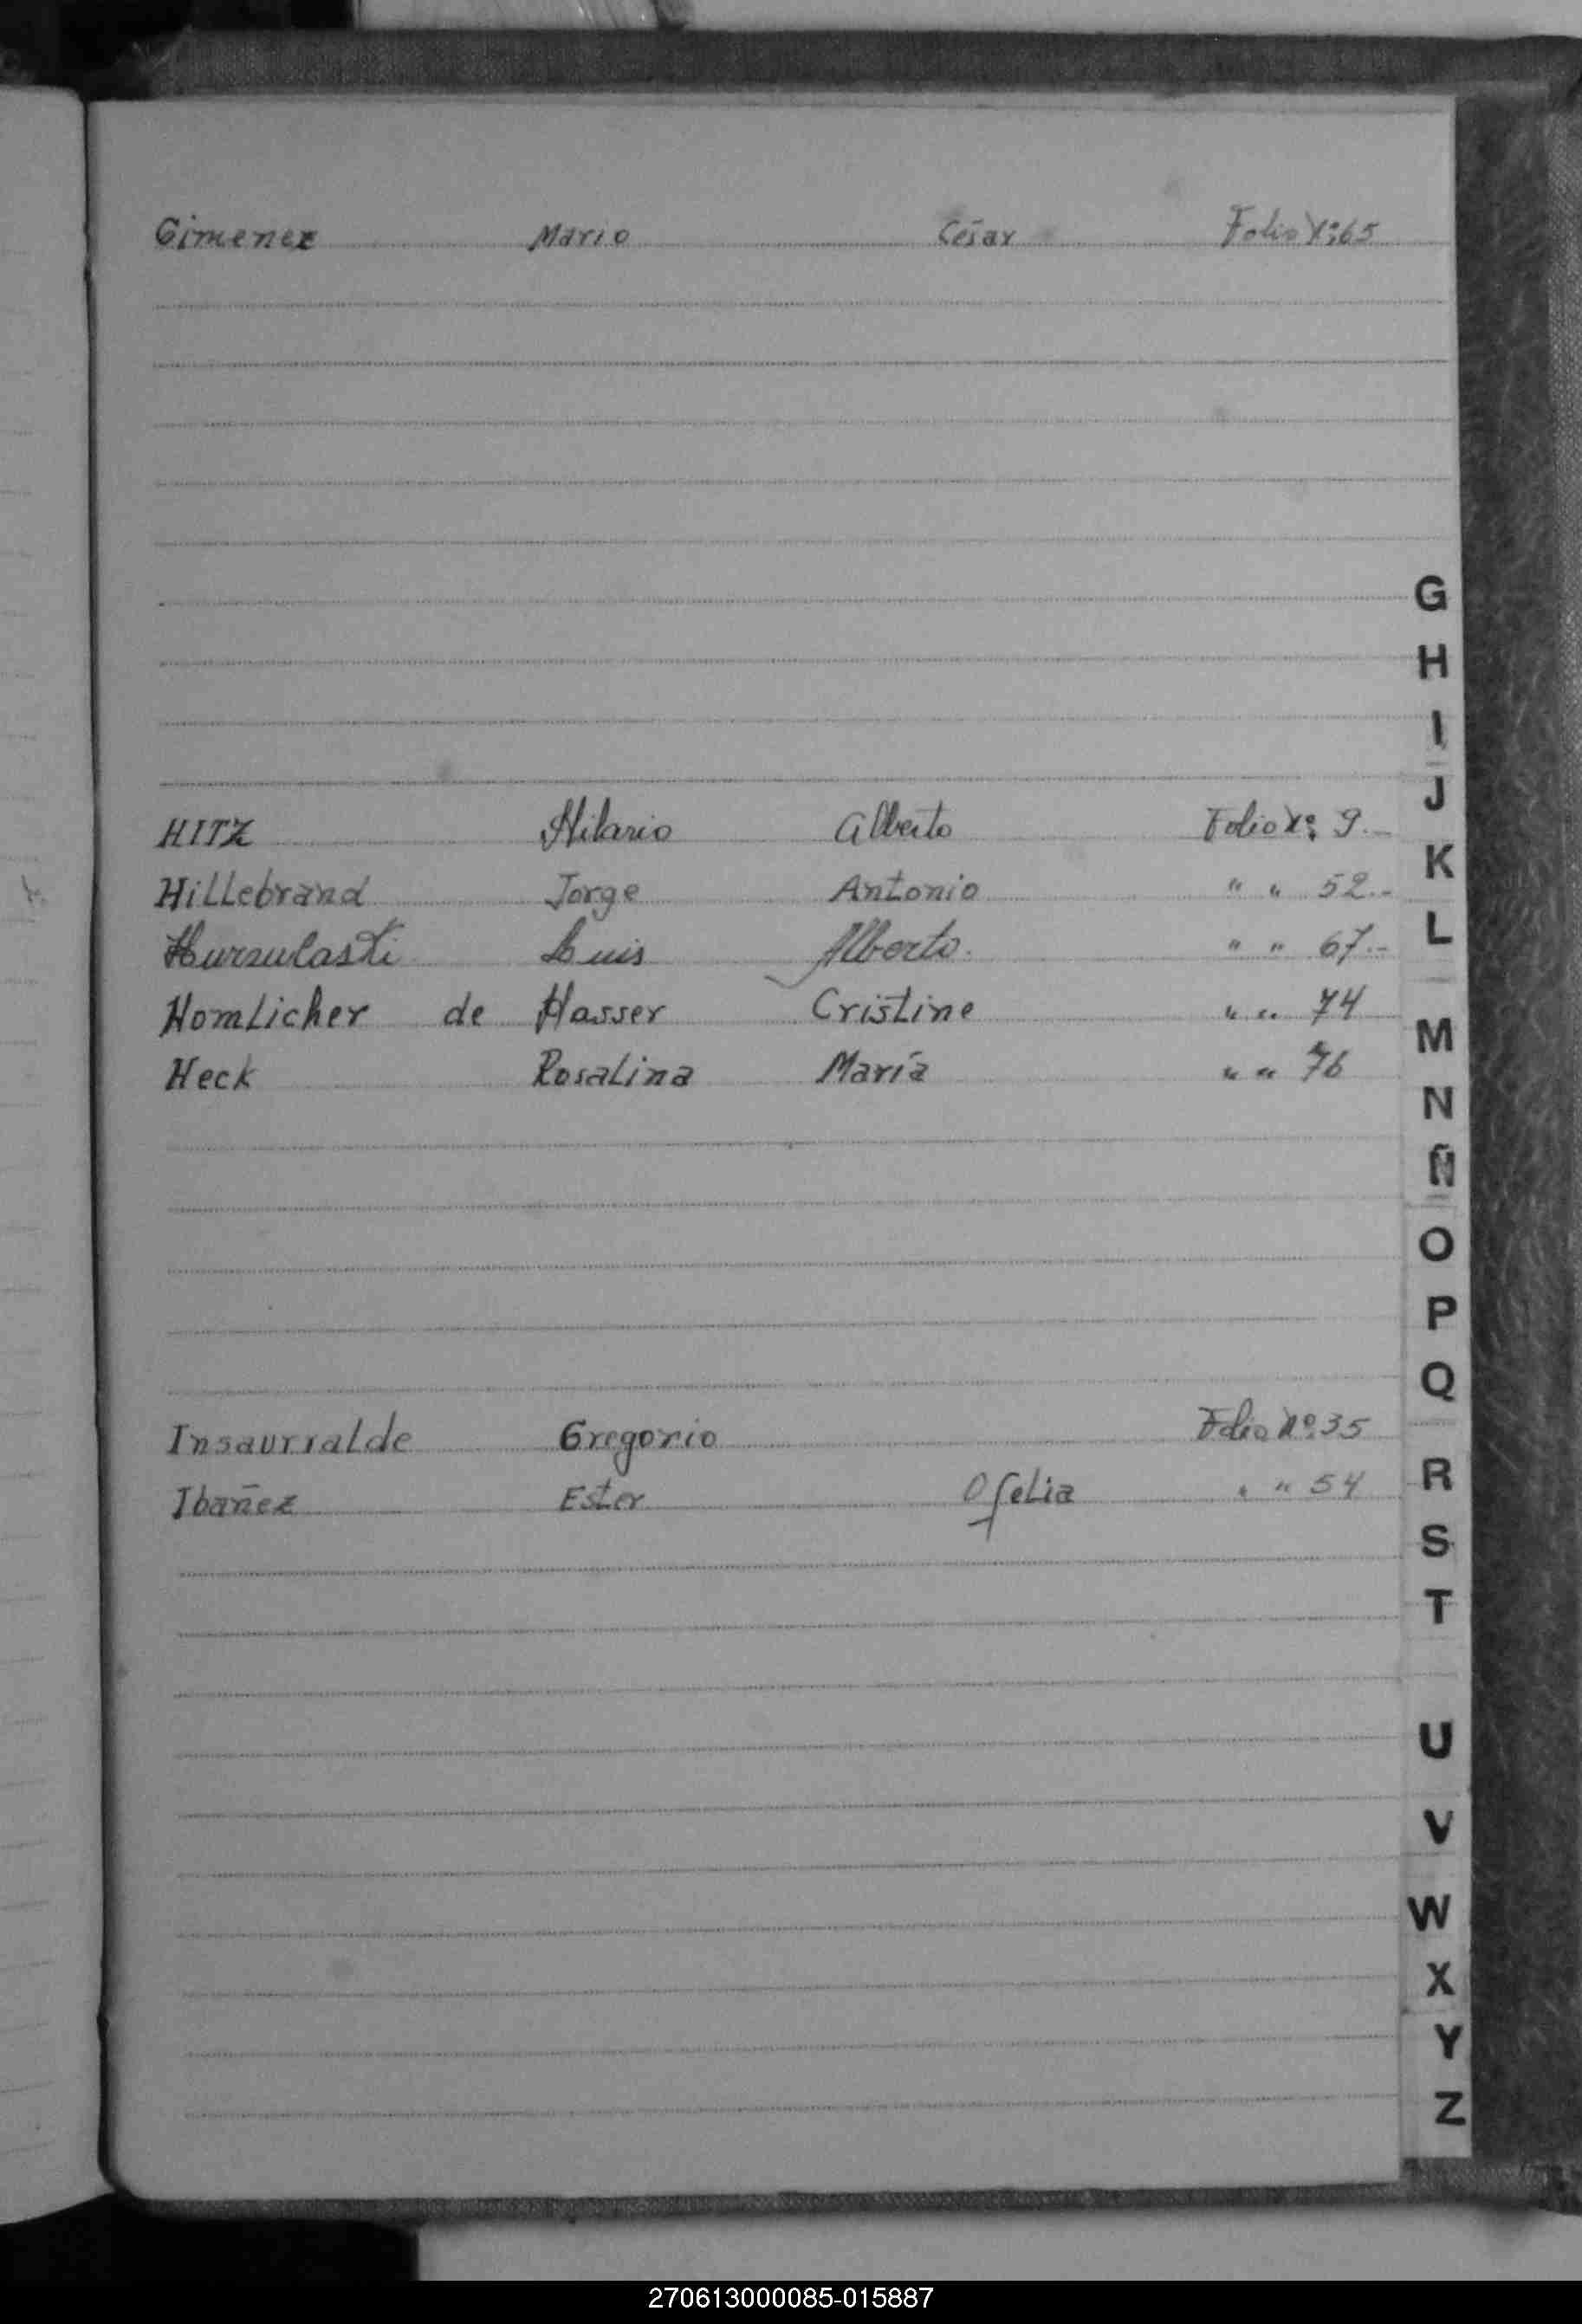 Gimenez Mario César Folio Nº 65
G
H
I
J
HITZ Hilario Alberto Folio Nº 9.-
K
Hillebrand Jorge Antonio " " 52.-
L
Luis Alberto. " " 67.-
Homlicher de Hasser Cristine " " 74
M
Heck Rosalina María " " 76
N
Ñ
O
P
Q
Insaurralde Gregorio Folio Nº 35
R
Ibañez Ester Ofelia " " 54
S
T
U
V
W
X
Y
Z
270613000085-015887